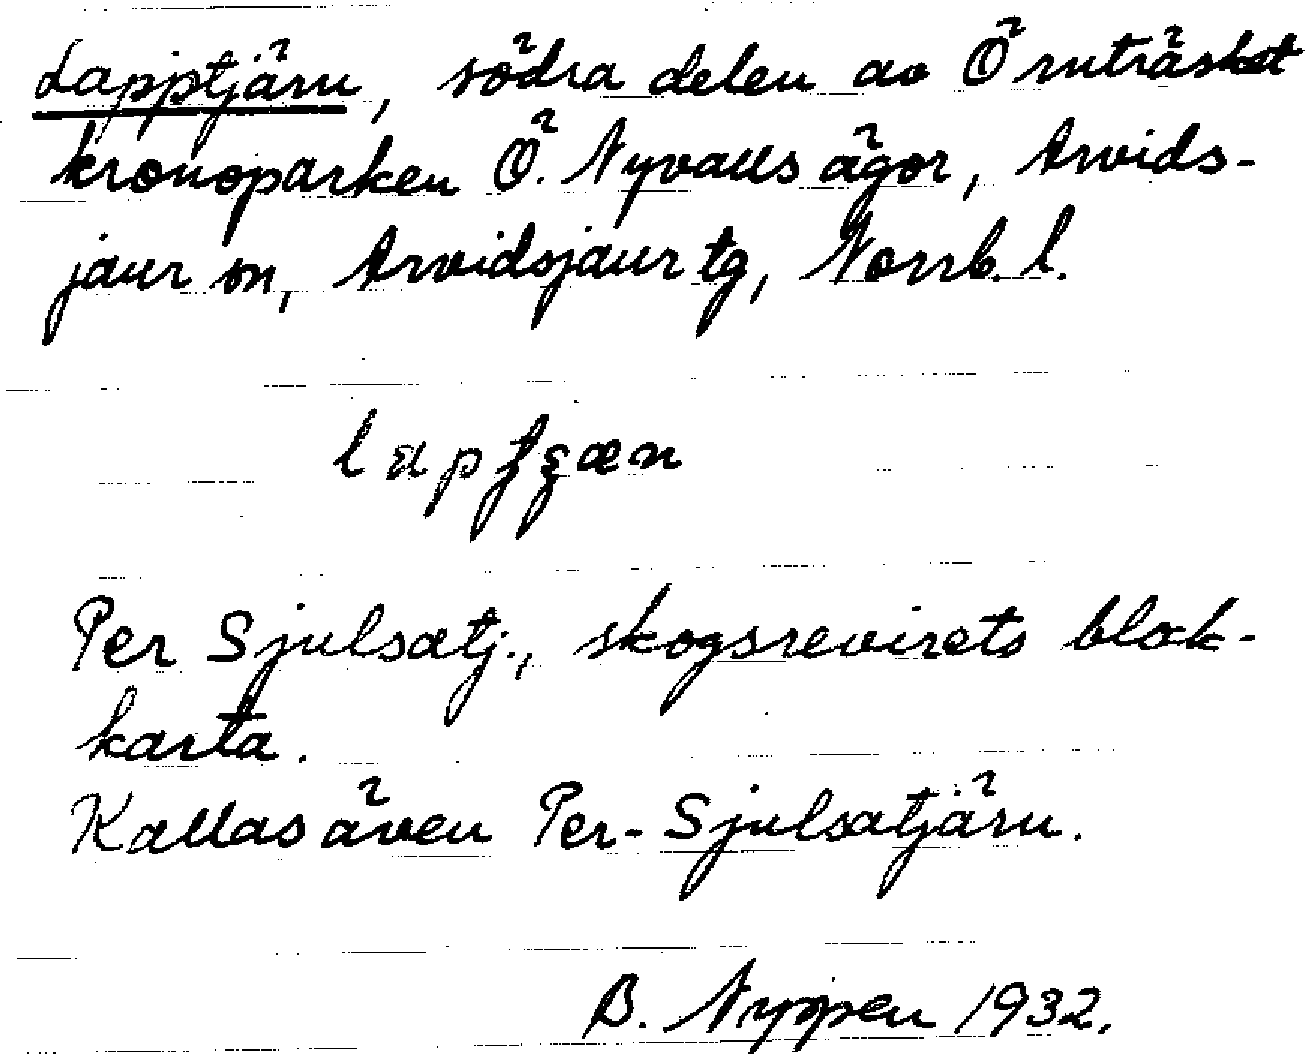 Lapptjärn, södra delen av Örnträsket
kronoparken Ö. Nyvalls ägor, Arvids-
jaur sn, Arvidsjaur tg, Norrb. l.
Per Sjulsatj., skogsrevirets blok-
karta.
Kallas även Per-Sjulsatjärn.
B. Nyppen 1932.